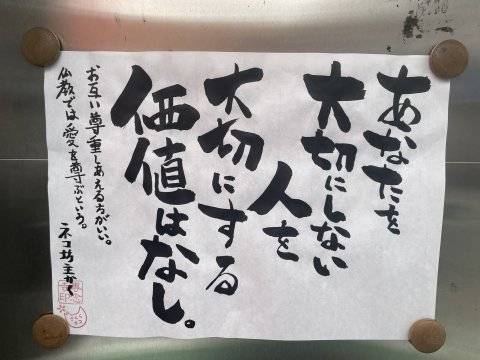 あなたを
大切にしない
人を
大切にする
価値はなし。
お互い尊重しあえる方がいい。
仏教では愛を尊ぶという。
ネコ坊主かく